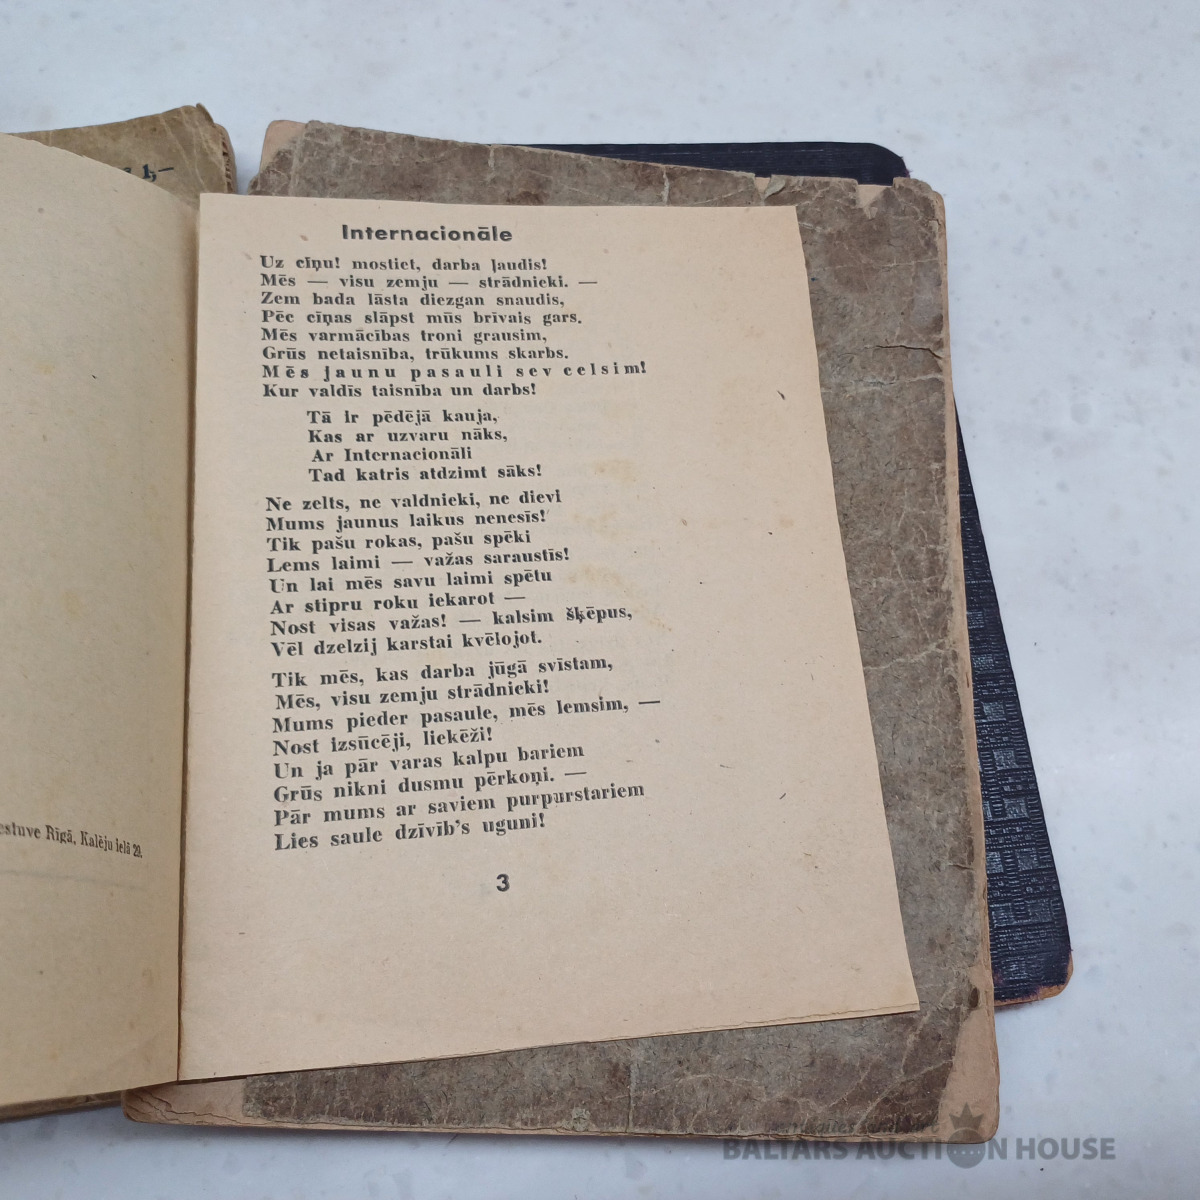 1,—
Internacionāle
Uz cīņu! mostiet, darba ļaudis!
Mēs — visu zemju — strādnieki. —
Zem bada lāsta diezgan snaudis,
Pēc cīņas slāpst mūs brīvais gars.
Mēs varmācības troni grausim,
Grūs netaisnība, trūkums skarbs.
Mēs jaunu pasauli sev celsim!
Kur valdīs taisnība un darbs!
Tā ir pēdējā kauja,
Kas ar uzvaru nāks,
Ar Internacionāli
Tad katris atdzimt sāks!
Ne zelts, ne valdnieki, ne dievi
Mums jaunus laikus nenesīs!
Tik pašu rokas, pašu spēki
Lems laimi — važas saraustīs!
Un lai mēs savu laimi spētu
Ar stipru roku iekarot —
Nost visas važas! — kalsim šķēpus,
Vēl dzelzij karstai kvēlojot.
Tik mēs, kas darba jūgā svīstam,
Mēs, visu zemju strādnieki!
Mums pieder pasaule, mēs lemsim, —
Nost izsūcēji, liekēži!
Un ja pār varas kalpu bariem
Grūs nikni dusmu pērkoņi. —
Pār mums ar saviem purpurstariem
Lies saule dzīvīb's uguni!
3
estuve Rīgā, Kalēju ielā 29.
BALTARS AUCTION HOUSE